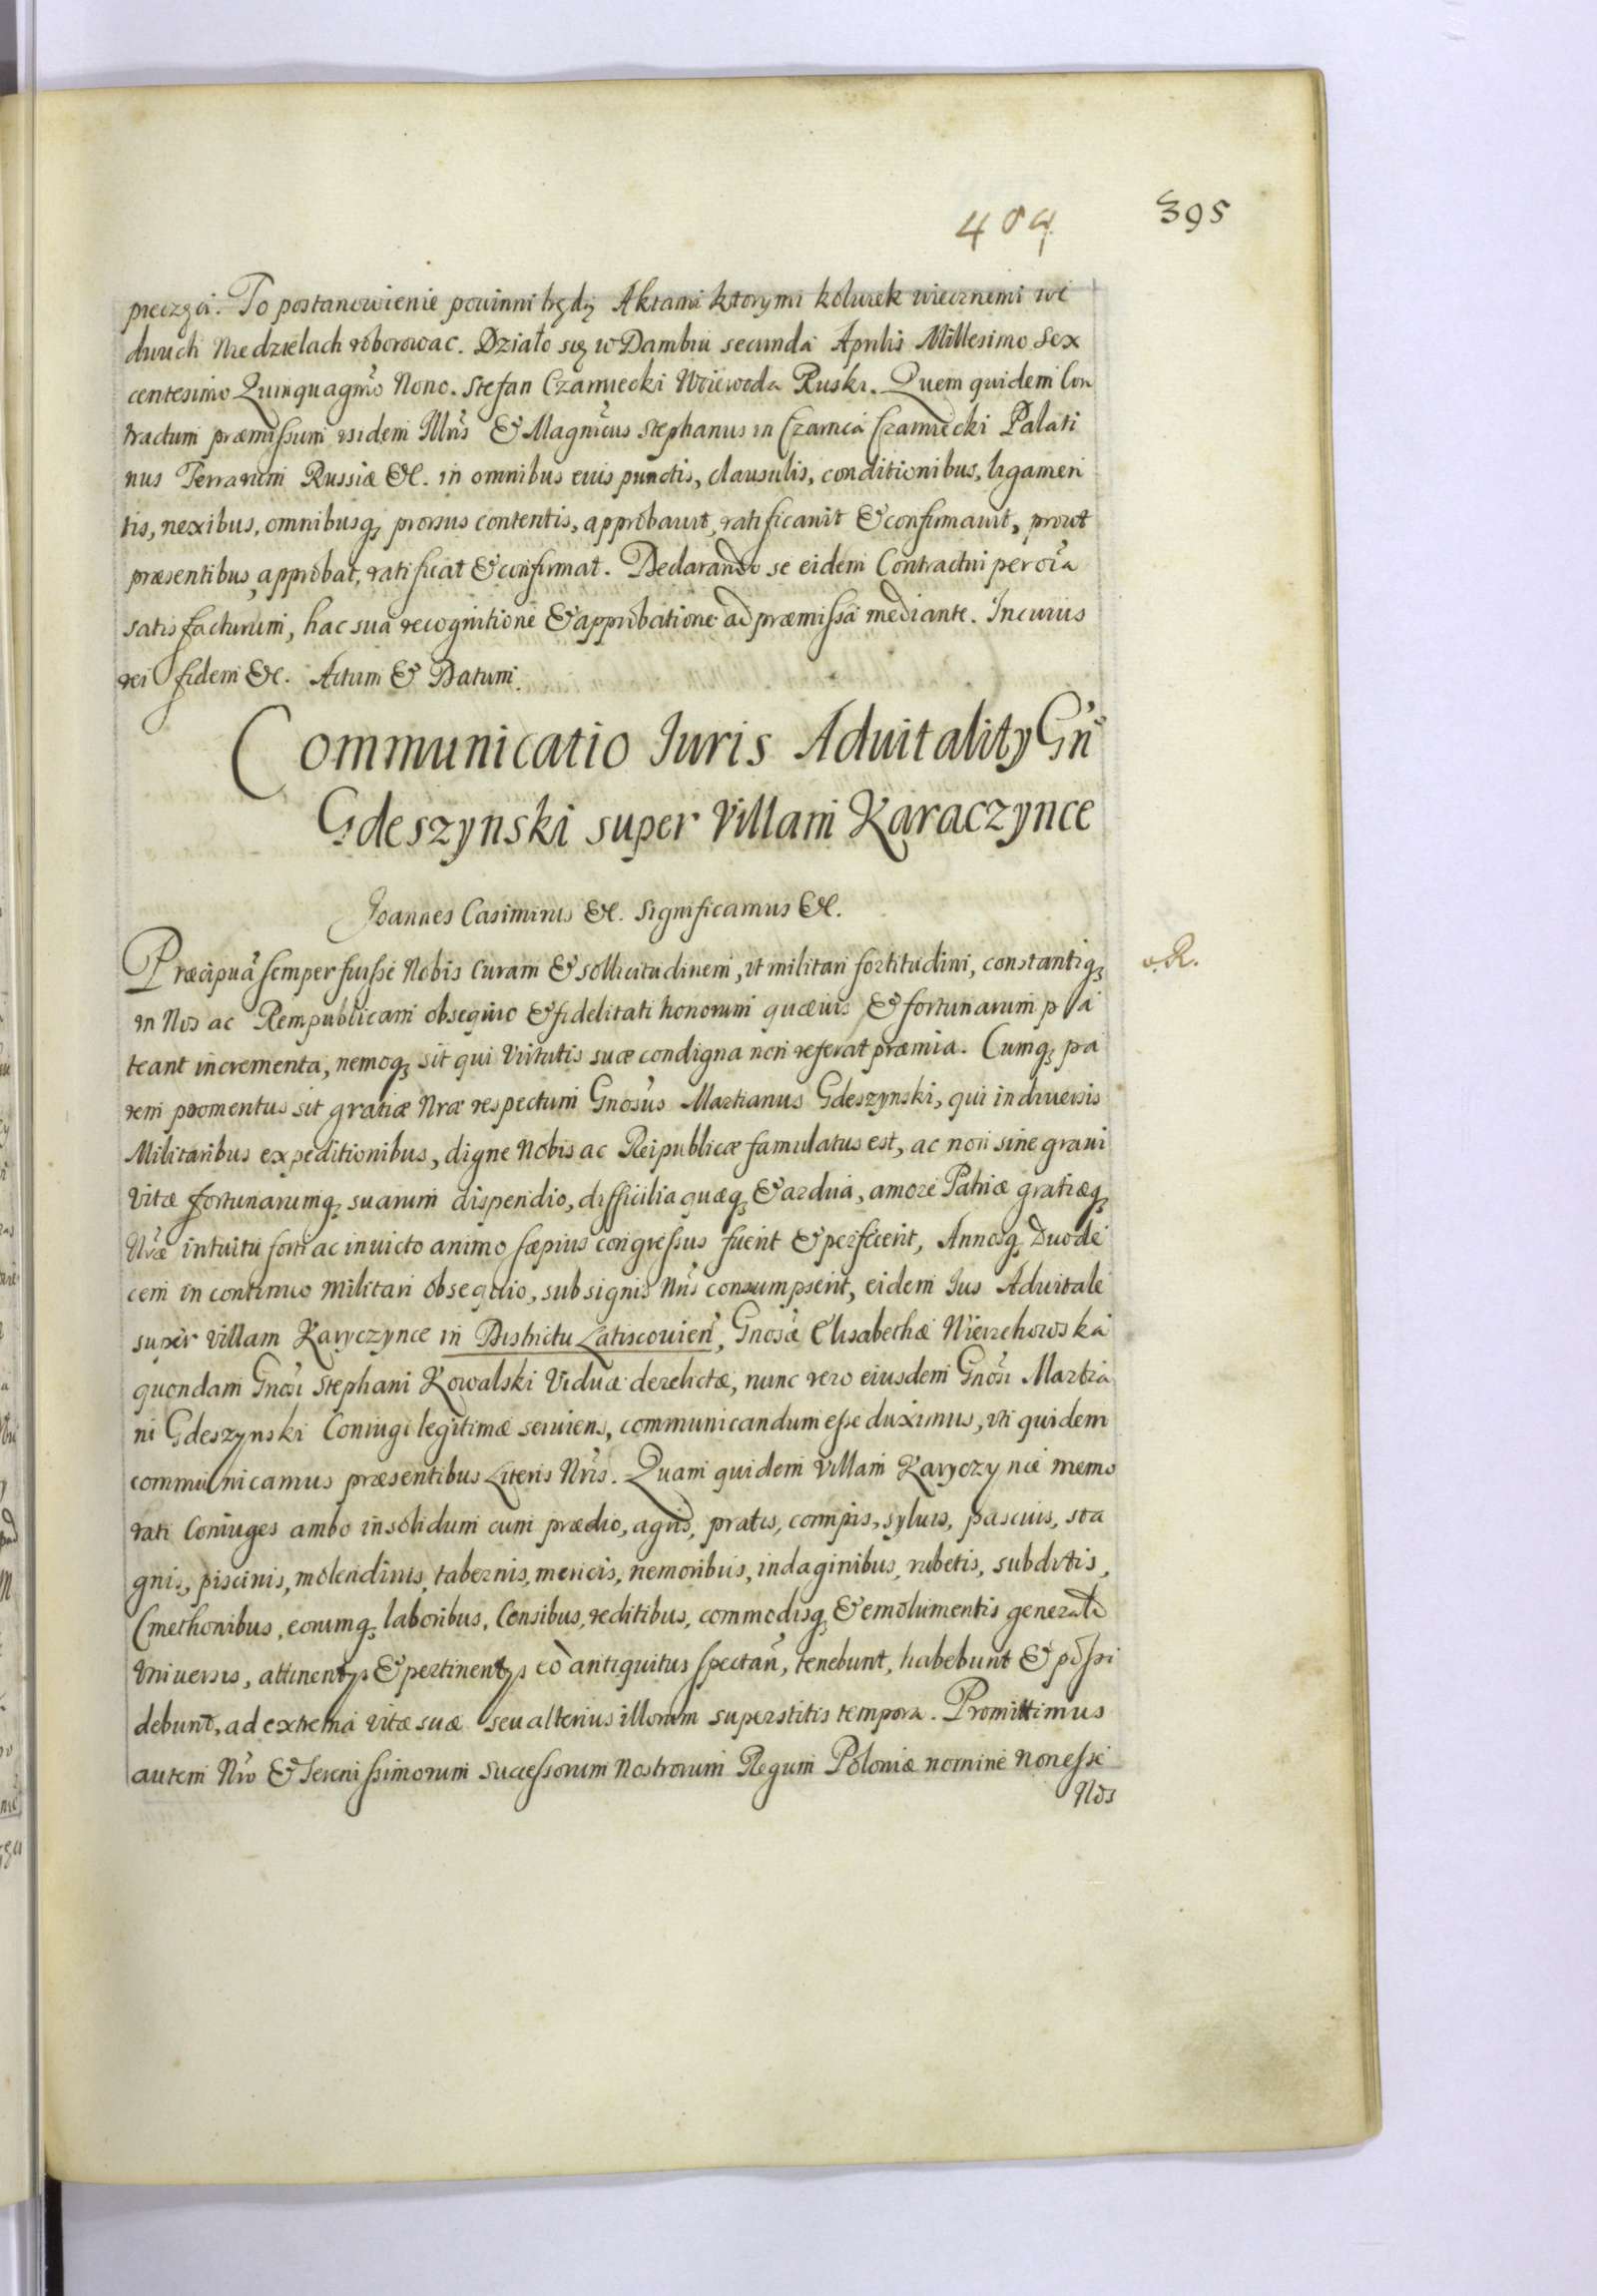 404 395
pieczęci. To postanowienie powinni będą Aktami ktorymi kolwiek wiecznemi we
dwuch Niedzielach roborowac. Działo się w Dambiu secunda Aprilis Millesimo Sex
centesimo Quinquagmo Nono. Stefan Czarniecki Woiewoda Ruski. Quem quidem Con
tractum præmissum isidem Illris & Magnicus Stephanus in Czarnca Czarniecki Palati
nus Terrarum Russiæ &c. in omnibus eius punctis, clausulis, conditionibus, ligamen
tis, nexibus, omnibusq; prorsus contentis, approbauit, ratificauit & confirmauit, prout
præsentibus approbat, ratificat & confirmat. Declarando se eidem Contractui per oia
satis facturum, hac sua recognitione & approbatione ad præmissa mediante. In cuius
rei fidem &c. Actum & Datum.
Communicatio Iuris Aduitality Gn
Gdeszynski super Villam Karaczynce
Joannes Casimirus &c. Significamus &c.
Præcipuã semper fuisse Nobis curam & sollicitudinem, ut militari fortitudini, constantiq; v. R.
in Nos ac Rempublicam obsequio & fidelitati honorum quæuis & fortunarum p a
teant incrementa, nemoq; sit qui Virtutis suæ condigna non referat præmia. Cumq; pa
rem promeritus sit gratiæ Nræ respectum Gnosus Martianus Gdeszynski, qui in diuersis
Militaribus expeditionibus, digne Nobis ac Reipublicæ famulatus est, ac non sine graui
Vitæ fortunarumq; suarum dispendio, difficilia quæq; & ardua, amore Patriæ gratiæq;
Nræ intuitu forti ac inuicto animo sæpius congressus fuerit & perfecerit, Annosq; Duode
cem in continuo Militari obsequio, sub signis Nris consumpserit, eidem Ius Aduitale
super Villam Karyczynce in Districtu Latiscouien, Gnosæ Elisabethæ Wierzchowska
quondam Gnosi Stephani Kowalski Viduæ derelictæ, nunc vero eiusdem Gnosi Martia
ni Gdeszynski Coniugi legitimæ seruiens, communicandum esse duximus, uti quidem
communicamus præsentibus Literis Nris. Quam quidem Villam Karyczynce memo
rati Coniuges ambo insolidum cum prædio, agris, pratis, campis, syluis, pascuis, sta
gnis, piscinis, molendinis, tabernis, mericis, nemoribus, indaginibus, rubetis, subditis,
Cmethonibus, eorumq; laboribus, Censibus, reditibus, commodisq; & emolumentis generalr
Vniuersis, attinentys & pertinentys eò antiquitus spectan, tenebunt, habebunt & possi
debunt, ad extrema vitæ suæ seu alterius illorum superstitis tempora. Promittimus
autem Nro & Serenissimorum Successorum Nostrorum Regum Poloniæ nomine non esse
Nos